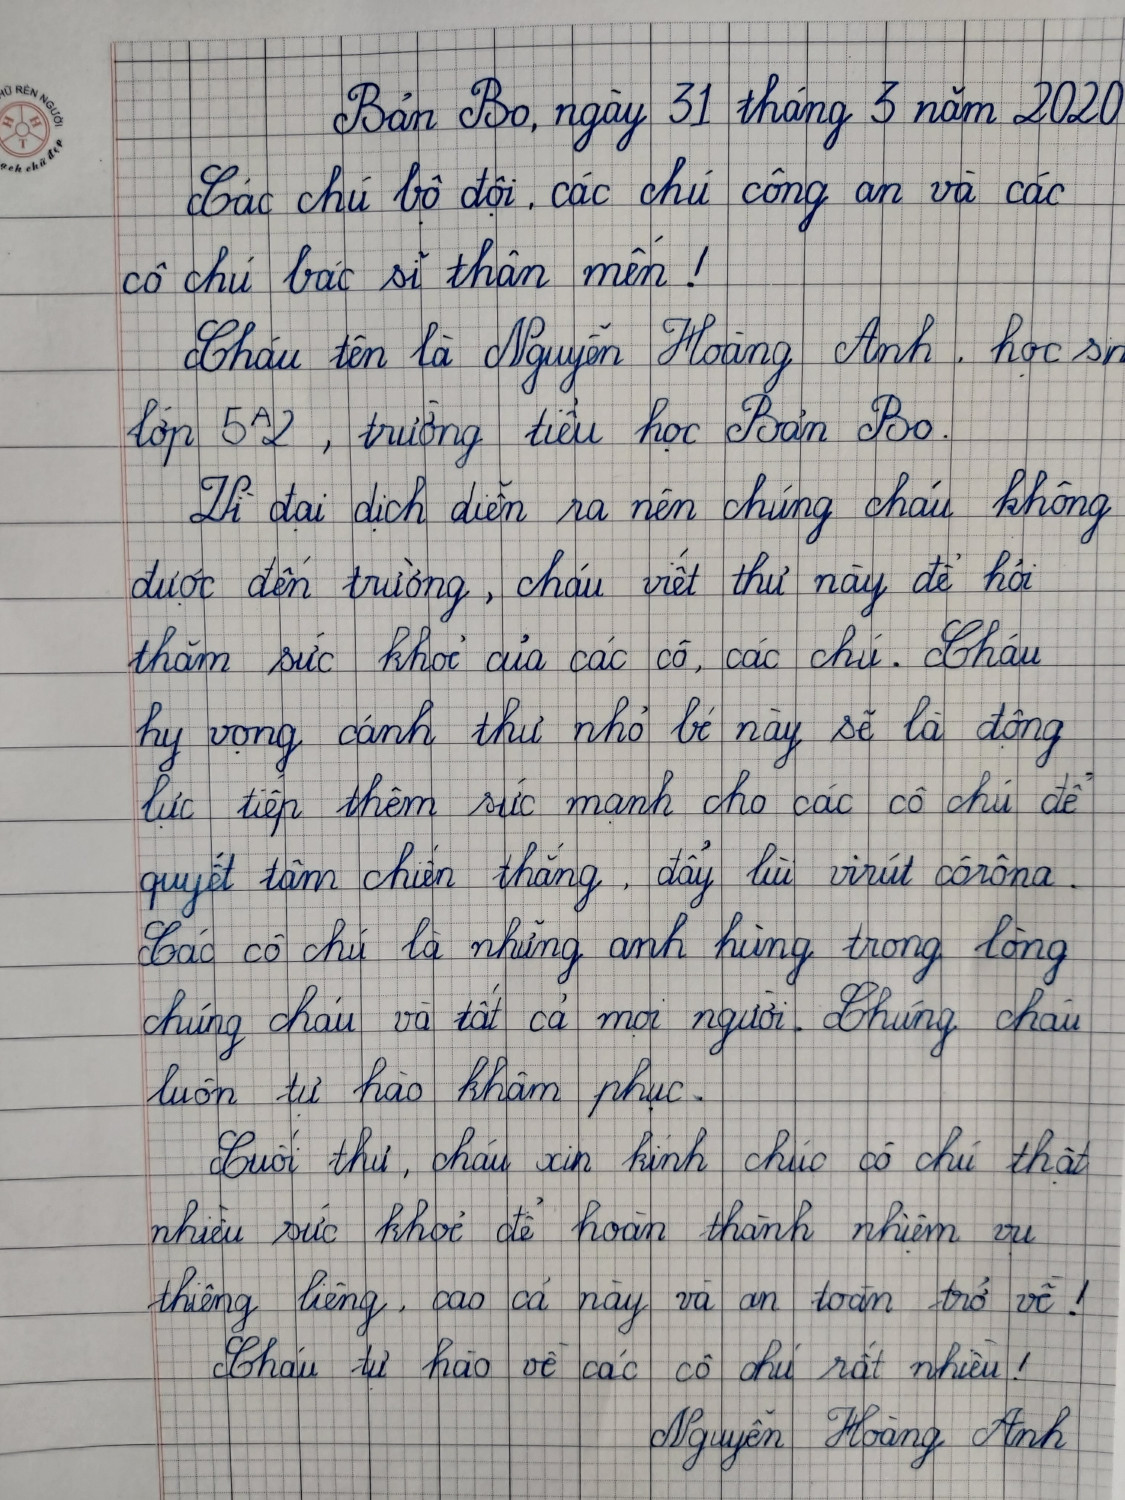 HỮ RÈN NGƯỜI
H H
T
ạch chữ đẹp
Bản Bo, ngày 31 tháng 3 năm 2020
Các chú bộ đội, các chú công an và các
cô chú bác sĩ thân mến!
Cháu tên là Nguyễn Hoàng Anh, học sn
lớp 5A2, trường tiểu học Bản Bo.
Vì đại dịch diễn ra nên chúng cháu không
được đến trường, cháu viết thư này để hỏi
thăm sức khoẻ của các cô, các chú. Cháu
hy vọng cánh thư nhỏ bé này sẽ là động
lực tiếp thêm sức mạnh cho các cô chú để
quyết tâm chiến thắng, đẩy lùi virút côrôna.
Các cô chú là những anh hùng trong lòng
chúng cháu và tất cả mọi người. Chúng cháu
luôn tự hào khâm phục.
Cuối thư, cháu xin kính chúc cô chú thật
nhiều sức khoẻ để hoàn thành nhiệm vụ
thiêng liêng, cao cả này và an toàn trở về!
Cháu tự hào về các cô chú rất nhiều!
Nguyễn Hoàng Anh